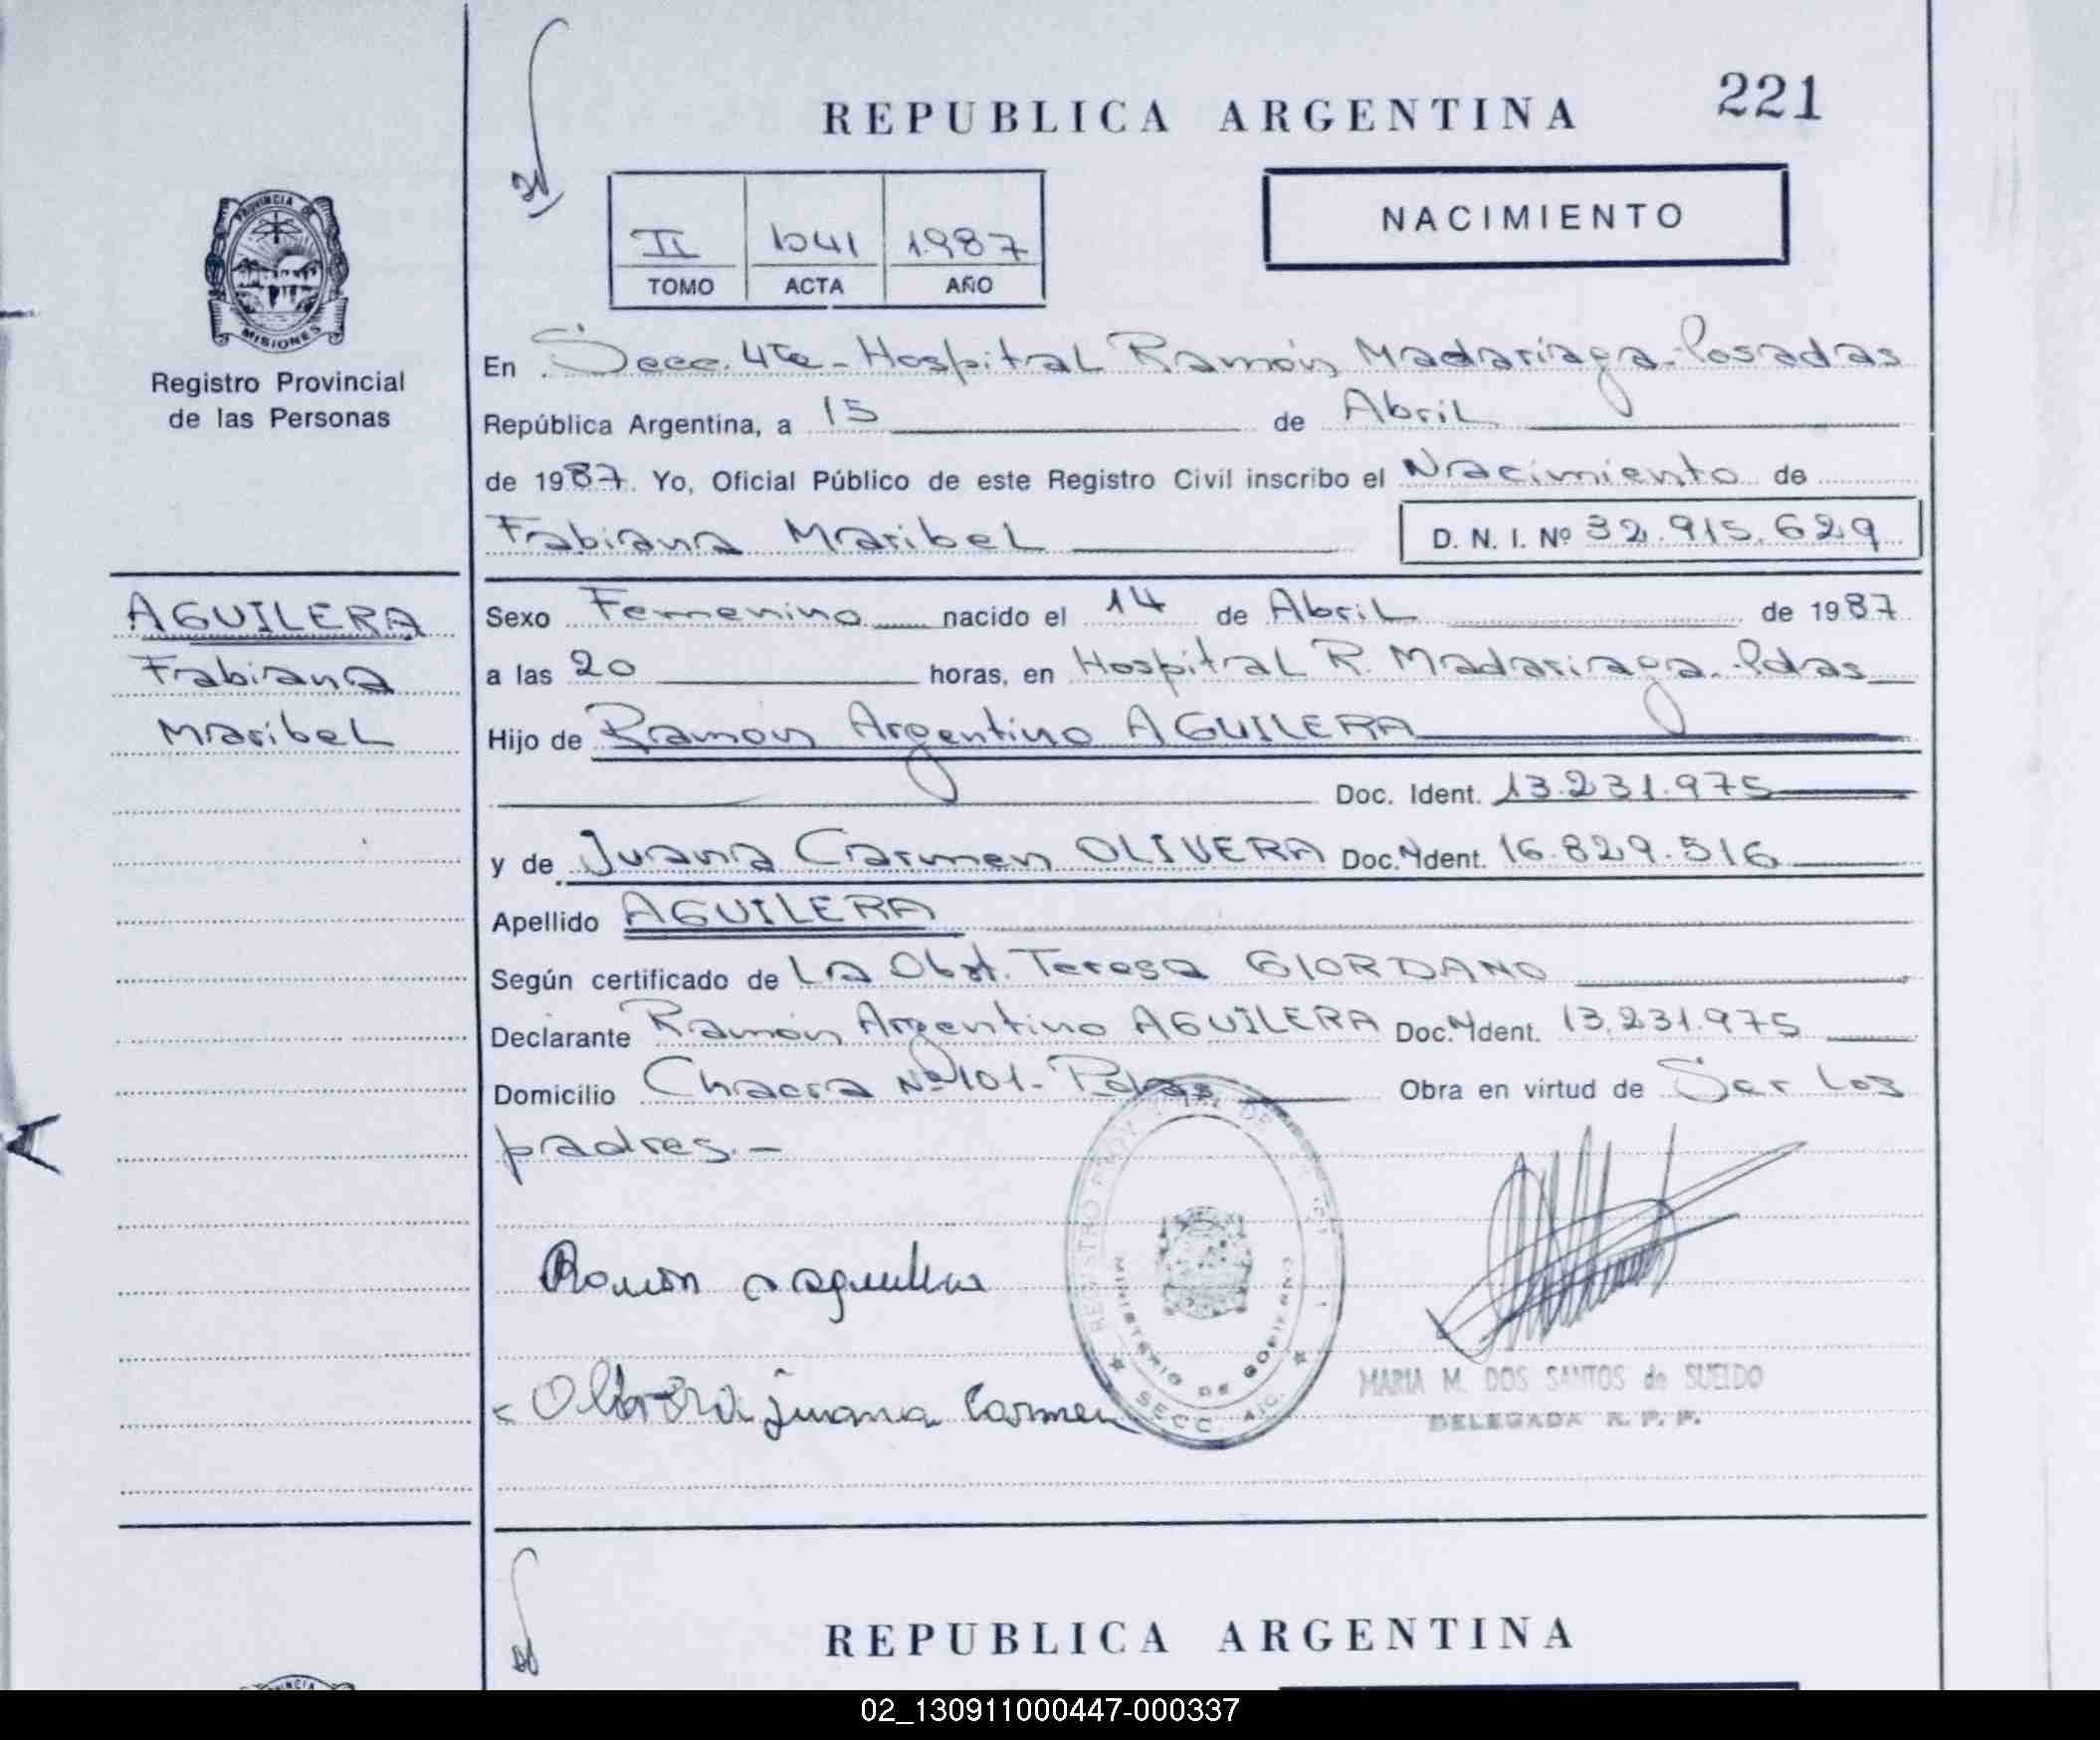 221
REPUBLICA ARGENTINA
NACIMIENTO
II 1041 1987
TOMO ACTA AÑO
PROVINCIA DE
MISIONES
Registro Provincial
de las Personas
En Secc. 4ta - Hospital Ramón Madariaga - Posadas
República Argentina, a 15 de Abril
de 1987. Yo, Oficial Público de este Registro Civil inscribo el Nacimiento de
Fabiana Maribel D. N. I. Nº 32.915.629
AGUILERA
Fabiana
Maribel
Sexo Femenino nacido el 14 de Abril de 1987
a las 20 horas, en Hospital R. Madariaga - Pdas
Hijo de Ramón Argentino AGUILERA
Doc. Ident. 13.231.975
y de Juana Carmen OLIVERA Doc. Ident. 16.829.516
Apellido AGUILERA
Según certificado de La Obst. Teresa GIORDANO
Declarante Ramón Argentino AGUILERA Doc. Ident. 13.231.975
Domicilio Chacra Nº 101 - Pdas Obra en virtud de Ser los
padres.-
Ramon a aguilera
Olivera juana Carmen
MINISTERIO DE GOBIERNO
SECC.
MARIA M. DOS SANTOS de SUEIDO
DELEGADA R. P. P.
REPUBLICA ARGENTINA
02_130911000447-000337